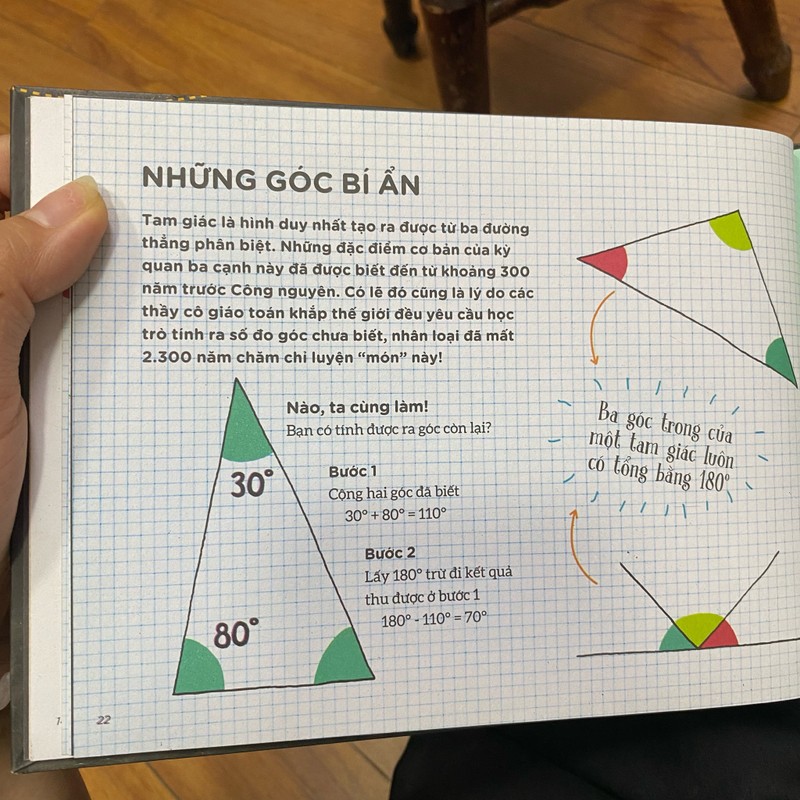 NHỮNG GÓC BÍ ẨN
Tam giác là hình duy nhất tạo ra được từ ba đường
thẳng phân biệt. Những đặc điểm cơ bản của kỳ
quan ba cạnh này đã được biết đến từ khoảng 300
năm trước Công nguyên. Có lẽ đó cũng là lý do các
thầy cô giáo toán khắp thế giới đều yêu cầu học
trò tính ra số đo góc chưa biết, nhân loại đã mất
2.300 năm chăm chỉ luyện “món” này!
Nào, ta cùng làm!
Bạn có tính được ra góc còn lại?
30°
Bước 1
Cộng hai góc đã biết
30° + 80° = 110°
Bước 2
Lấy 180° trừ đi kết quả
thu được ở bước 1
180° - 110° = 70°
80°
Ba góc trong của
một tam giác luôn
có tổng bằng 180°
22